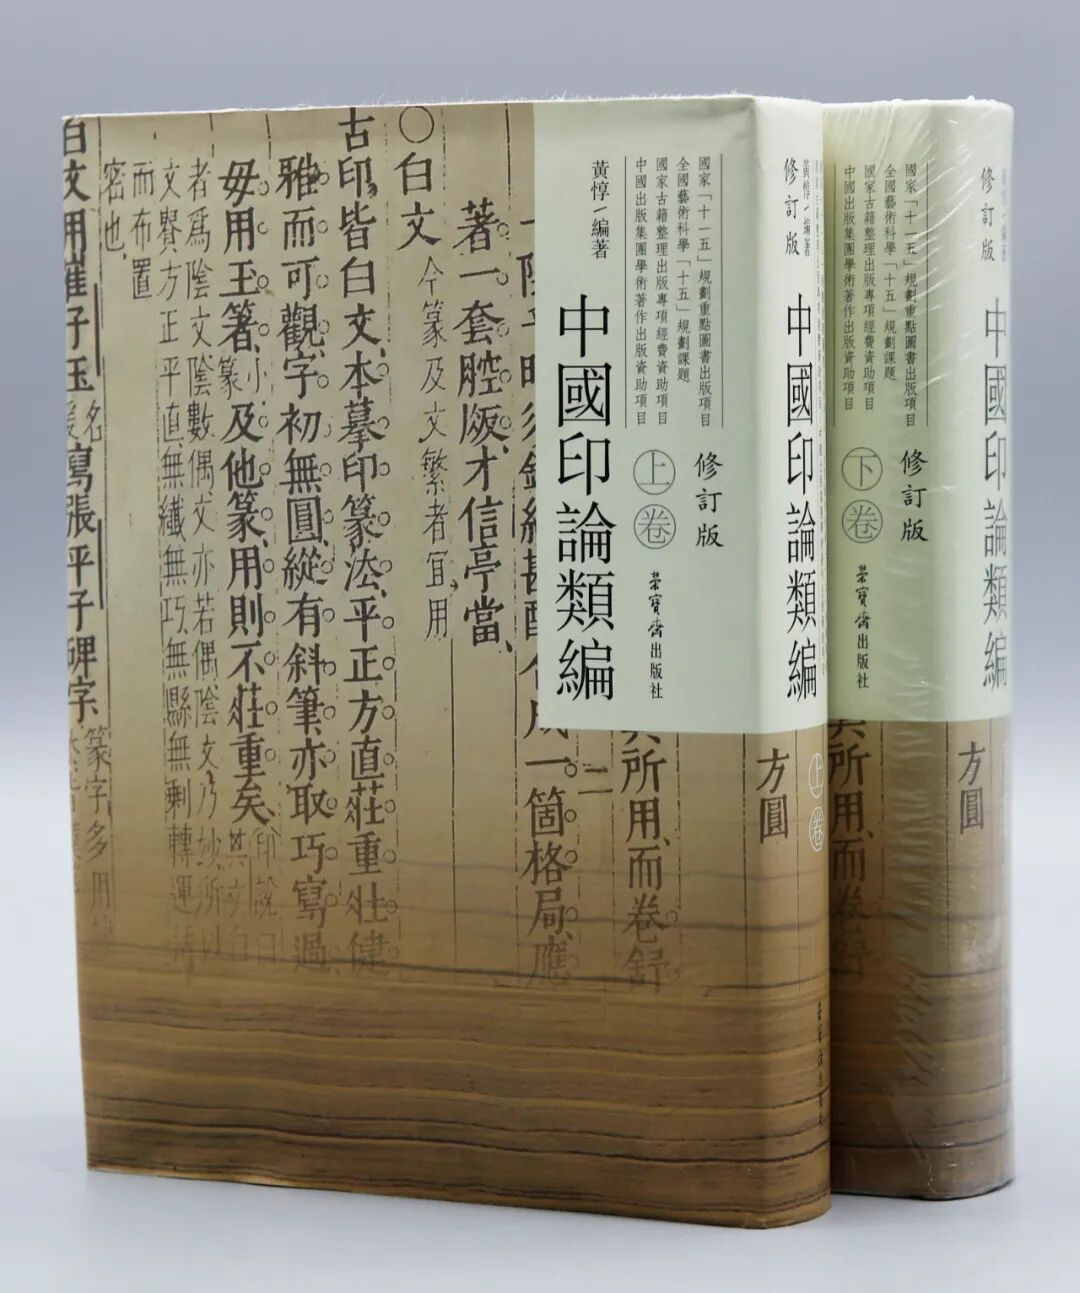 國家「十一五」規劃重點圖書出版項目
全國藝術科學「十五」規劃課題
國家古籍整理出版專項經費資助項目
中國出版集團學術著作出版資助項目
黃惇/編著
中國印論類編
修訂版
上卷
榮寶齋出版社
其所用、而卷舒
二
一箇格局。應
著一套腔版。才信亭當、
〇白文
今篆及文繁者宜、用
古印、皆白文、本摹印篆法、平正方直莊重壯健
雅而可觀、字初無圓、縱有斜筆、亦取巧寫過、
毋用玉箸、小篆及他篆、用則不莊重矣、
者爲陰文陰數偶、文亦若偶、陰文乃妙、所以
文賢方正平直、無纖無巧、無懸無剩、轉運
而布置
密也、
白文用崔子玉
寫張平子碑字、
篆字多用
方圓
修訂版
黃惇/編著
中國印論類編
上卷
方圓
國家「十一五」規劃重點圖書出版項目
全國藝術科學「十五」規劃課題
國家古籍整理出版專項經費資助項目
中國出版集團學術著作出版資助項目
修訂版
下卷
榮寶齋出版社
其所用、而卷舒
修訂版
中國印論類編
方圓